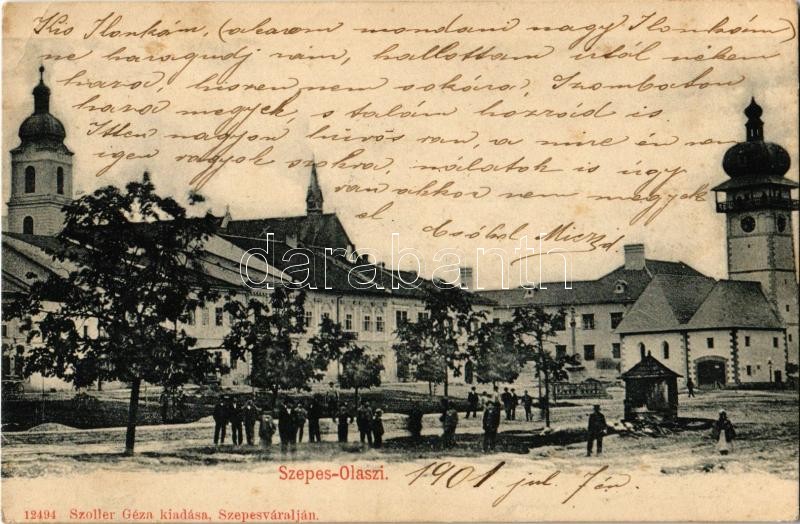 Kis Ilonkám, (akarom mondani nagy Ilonkám)
ne haragudj rám, hallottam írtál nékem
haza, hiszen nem sokára, Szombaton
haza megyek, s talán hozzád is
Itten nagyon hűvös van, a mire én nem
igen vagyok szokva, nálatok is úgy
van akkor nem megyek
el
csókol
darabanth
Szepes-Olaszi.
1901 jul. 7én.
12494 Szoller Géza kiadása, Szepesváralján.